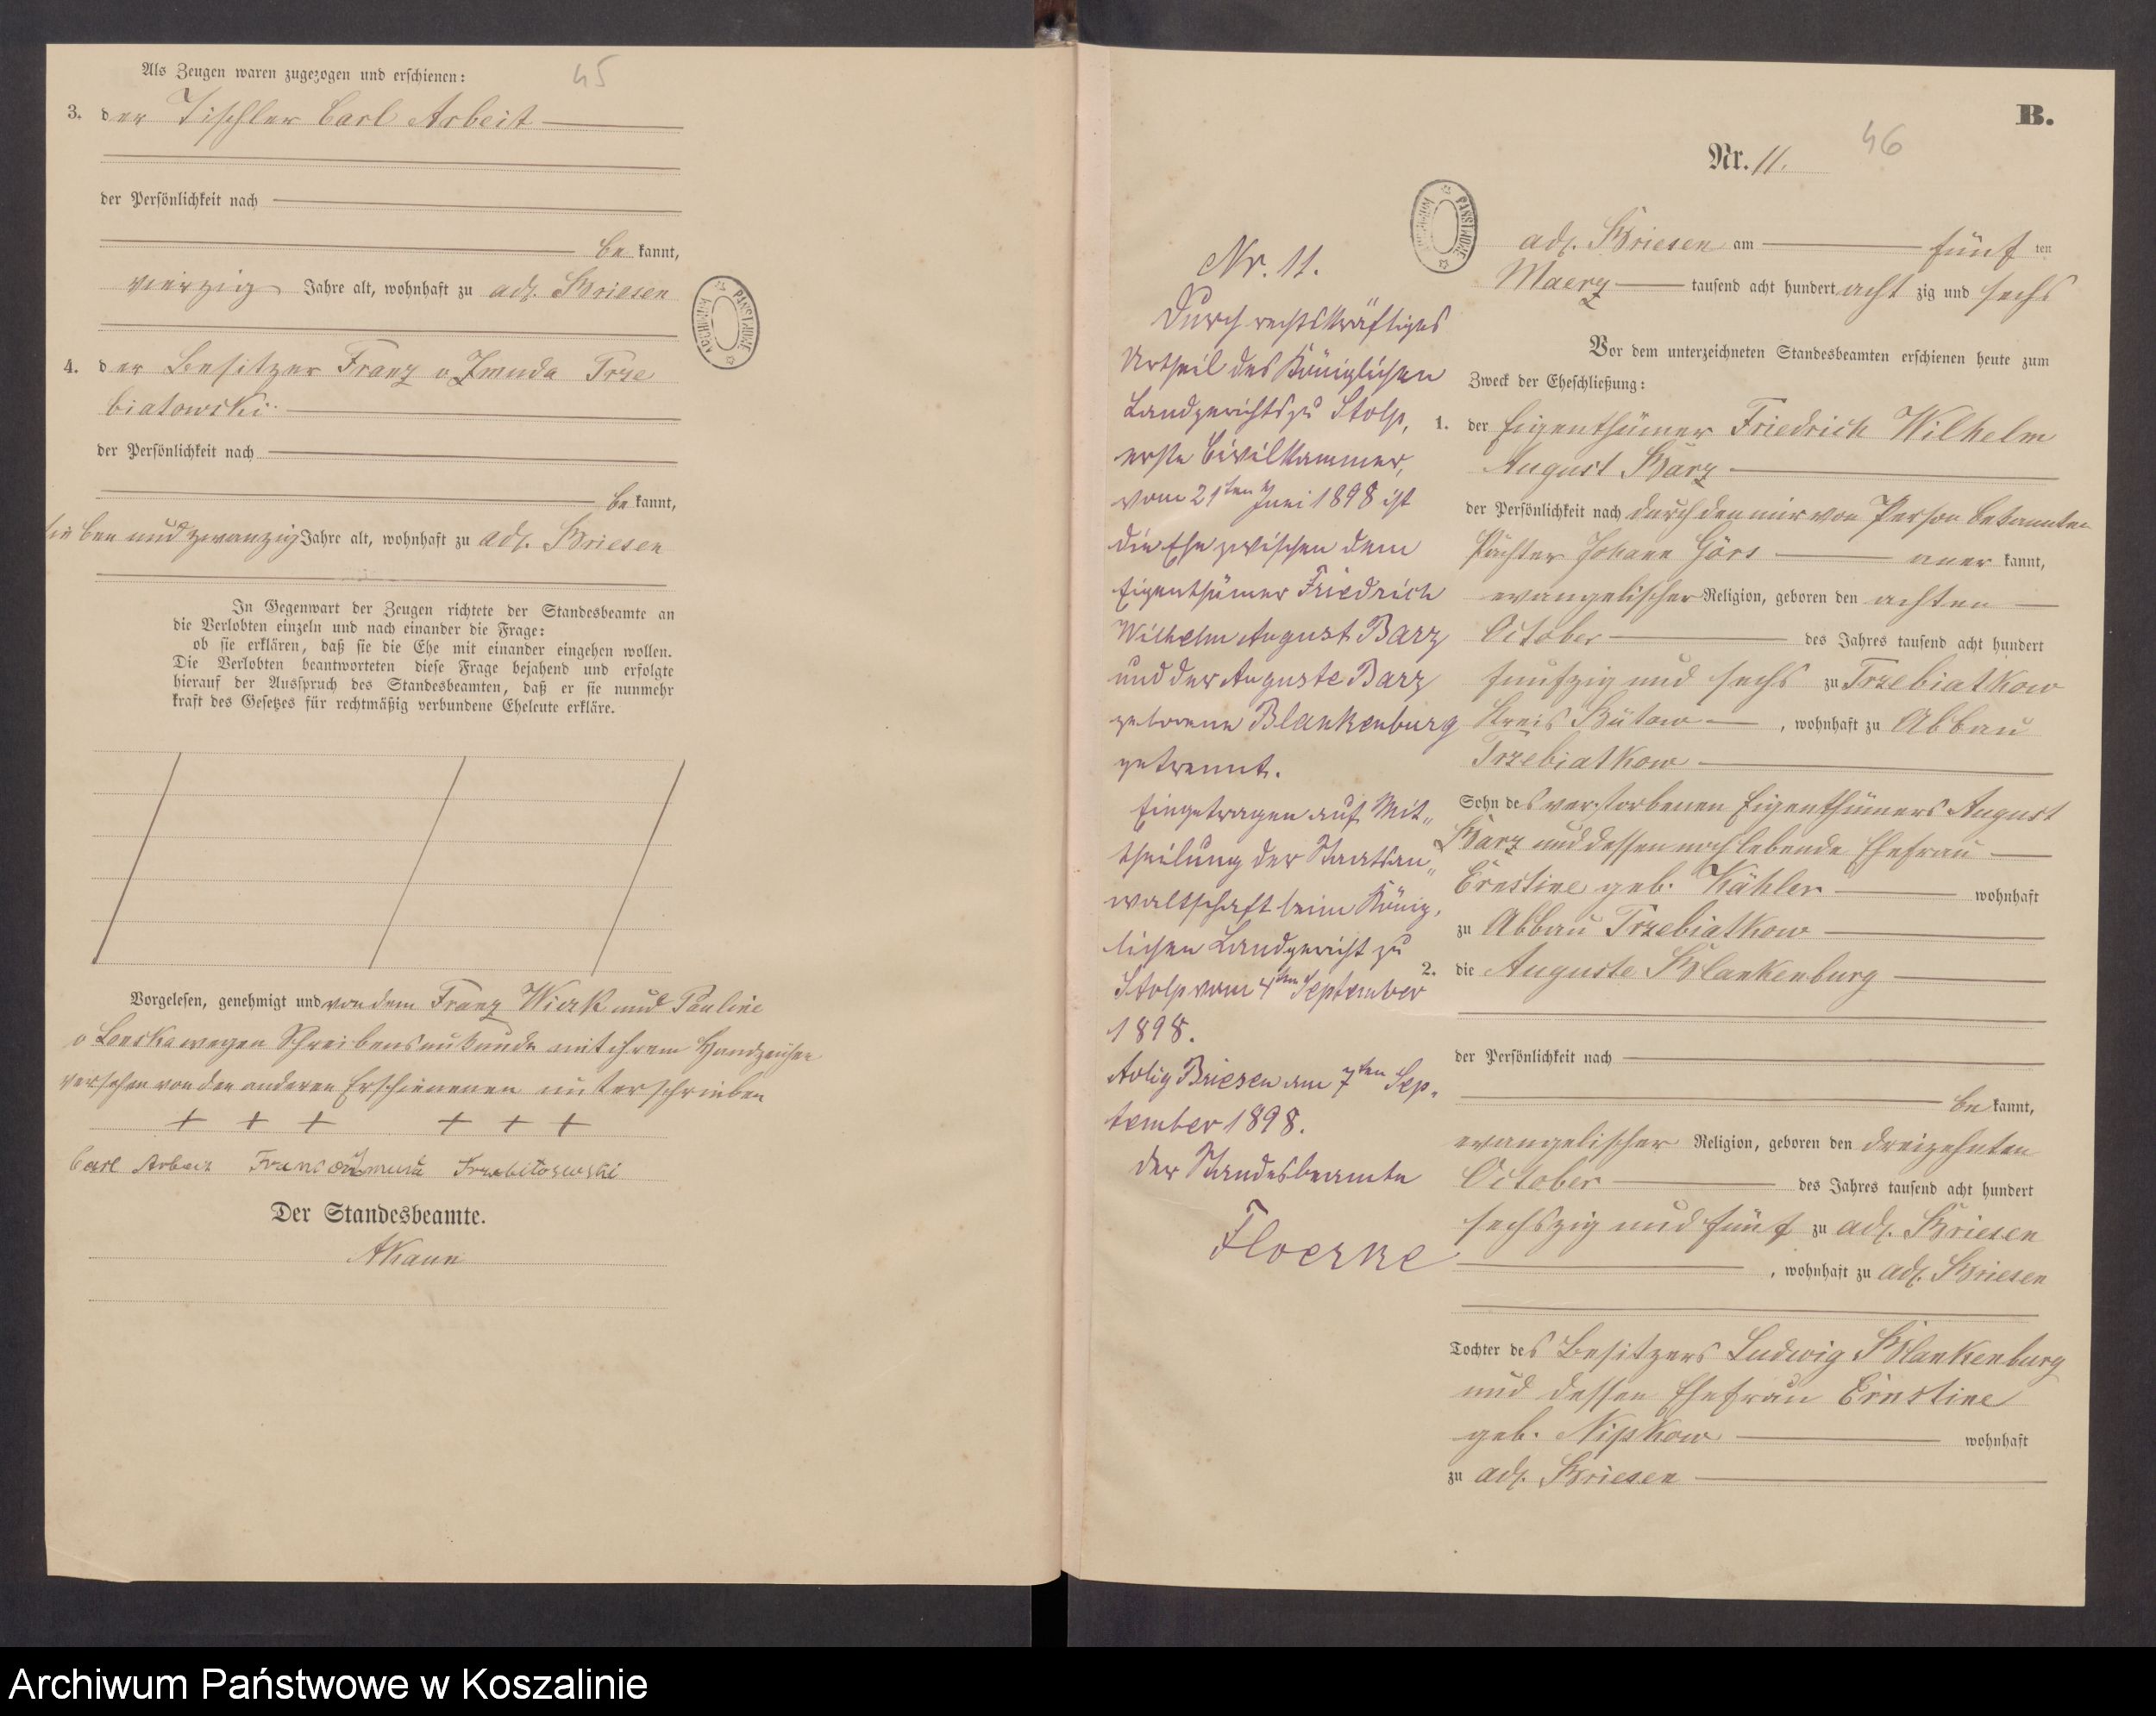 Als Zeugen waren zugezogen und erschienen:
45
3. der Tischler Carl Arbeit
der Persönlichkeit nach
be kannt,
vierzig Jahre alt, wohnhaft zu adl. Briesen
4. der Besitzer Franz v Zmuda Trze
biatowski
der Persönlichkeit nach
be kannt,
sieben und zwanzig Jahre alt, wohnhaft zu adl. Briesen
In Gegenwart der Zeugen richtete der Standesbeamte an
die Verlobten einzeln und nach einander die Frage:
ob sie erklären, daß sie die Ehe mit einander eingehen wollen.
Die Verlobten beantworteten diese Frage bejahend und erfolgte
hierauf der Ausspruch des Standesbeamten, daß er sie nunmehr
kraft des Gesetzes für rechtmäßig verbundene Eheleute erkläre.
Vorgelesen, genehmigt und von dem Franz Wierk und Pauline
v Lonska wegen Schreibensunkunde mit ihrem Handzeichen
versehen von den anderen Erschienenen unterschrieben
+ + + + + +
Carl Arbeit Franc Zmuda Trzebiatowski
Der Standesbeamte.
AKaun
B.
46
Nr. 11.
adl. Briesen am fünf ten
Maerz tausend acht hundert acht zig und sechs
Vor dem unterzeichneten Standesbeamten erschienen heute zum
Zweck der Eheschließung:
1. der Eigenthümer Friedrich Wilhelm
August Barz
der Persönlichkeit nach durch den mir von Person bekannten
Pächter Johann Görs aner kannt,
evangelischer Religion, geboren den achten
October des Jahres tausend acht hundert
funfzig und sechs zu Trzebiatkow
Kreis Bütow, wohnhaft zu Abbau
Trzebiatkow
Sohn des verstorbenen Eigenthümers August
Barz und dessen noch lebende Ehefrau
Ernstine geb. Kähler wohnhaft
zu Abbau Trzebiatkow
2. die Auguste Blankenburg
der Persönlichkeit nach
be kannt,
evangelischer Religion, geboren den dreizehnten
October des Jahres tausend acht hundert
sechszig und fünf zu adl. Briesen
, wohnhaft zu adl. Briesen
Tochter des Besitzers Ludwig Blankenburg
und dessen Ehefrau Ernstine
geb. Nipkow wohnhaft
zu adl. Briesen
Nr. 11.
Durch rechtskräftiges
Urtheil des Königlichen
Landgerichts zu Stolp,
erste Civilkammer,
vom 21ten Juni 1898 ist
die Ehe zwischen dem
Eigenthümer Friedrich
Wilhelm August Barz
und der Auguste Barz
geborene Blankenburg
getrennt.
Eingetragen auf Mit„
theilung der Staatsan„
waltschaft beim König„
lichen Landgericht zu
Stolp vom 4ten September
1898.
Adlig Briesen am 7ten Sep„
tember 1898.
Der Standesbeamte
Floerke
Archiwum Państwowe w Koszalinie